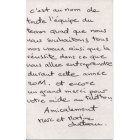 c'est au nom de
toute l'équipe du
team quad que nous
vous souhaitons tous
nos vœux ainsi que la
réussite dans ce que
vous allez entreprendre
durant cette année
2001. et encore
un grand merci pour
votre aide au téléthon
Amicalement
Marc et